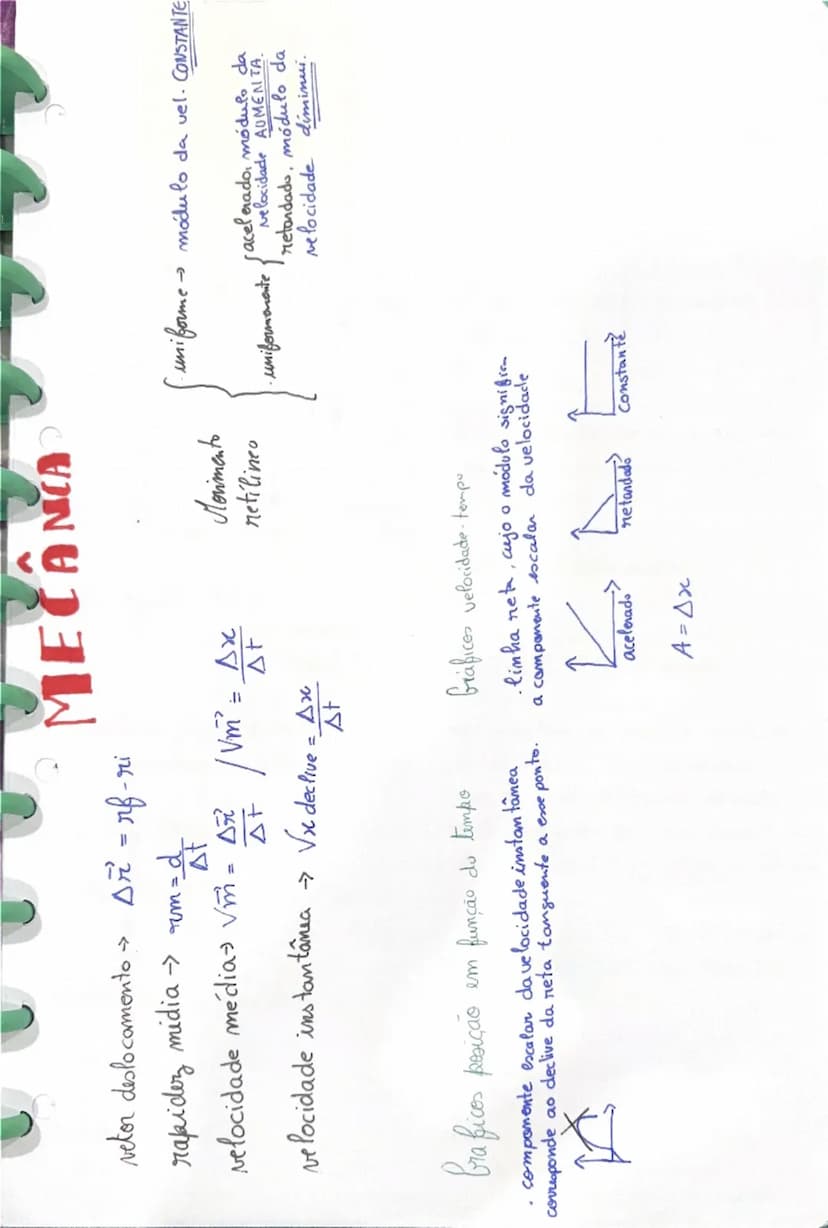 MECÂNICA
vetor deslocamento → Δr⃗ = rf - ri
rapidez média → rm = d/Δt
velocidade média → Vm⃗ = Δr⃗/Δt / Vm⃗ = Δx/Δt
velocidade instantânea → Vx declive = Δx/Δt
Movimento
retilíneo
· uniforme → módulo da vel. CONSTANTE
· uniformemente
acelerado, módulo da
velocidade AUMENTA.
retardado, módulo da
velocidade diminui.
Gráficos posição em função do tempo
· componente escalar da velocidade instantânea
corresponde ao declive da reta tanguente a esse ponto.
Gráficos velocidade-tempo
· linha reta, cujo o módulo signific
a componente escalar da velocidade
acelerado
retardado
constante
A = Δx